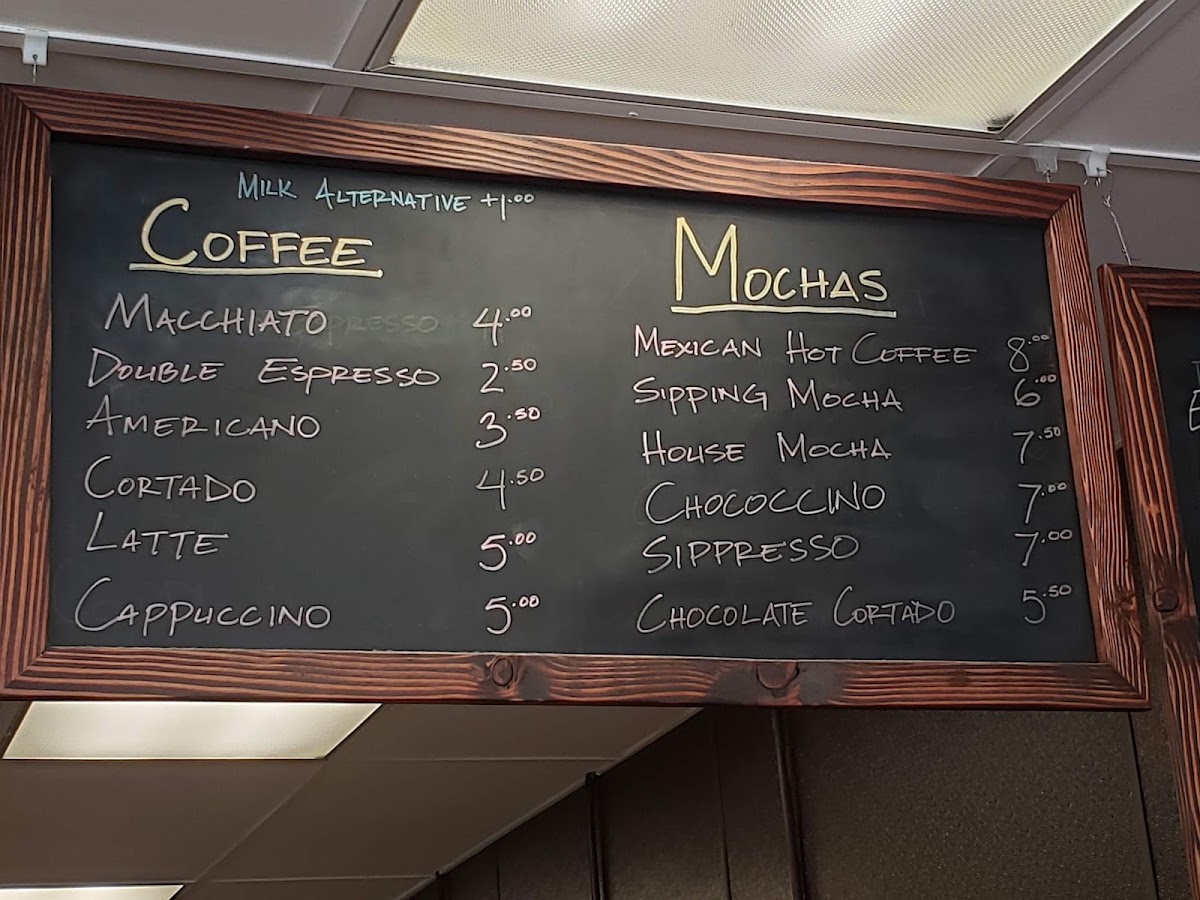 MILK ALTERNATIVE +1.00
COFFEE
MACCHIATO 4.00
DOUBLE ESPRESSO 2.50
AMERICANO 3.50
CORTADO 4.50
LATTE 5.00
CAPPUCCINO 5.00
MOCHAS
MEXICAN HOT COFFEE 8.00
SIPPING MOCHA 6.00
HOUSE MOCHA 7.50
CHOCOCCINO 7.00
SIPPRESSO 7.00
CHOCOLATE CORTADO 5.50